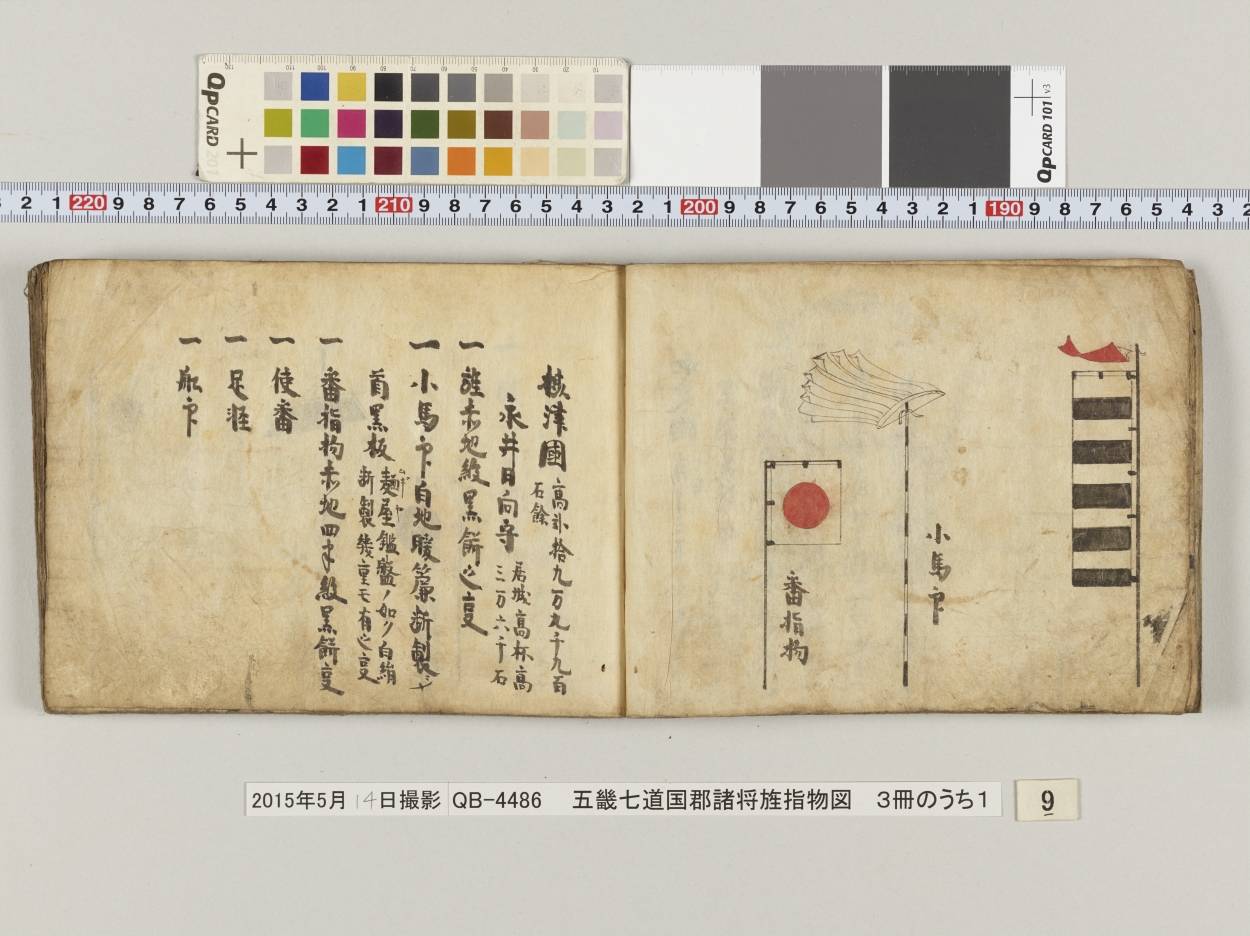 QPCARD 201
QPCARD 101 v3
3 2 1 220 9 8 7 6 5 4 3 2 1 210 9 8 7 6 5 4 3 2 1 200 9 8 7 6 5 4 3 2 1 190 9 8 7 6 5 4 3 2
小馬印
番指物
摂津國 高弐拾九万九千九百
石餘
永井日向守 居城高槻高
三万六千石
一 旌赤地紋黒餅之叓
一 小馬印白地暖簾断製ニシテ
首黒板 麺屋鑑盤ノ如ク白絹
断製幾重モ有之叓
一 番指物赤地四半紋黒餅叓
一 使番
一 足軽
一 船印
2015年5月14日撮影 QB-4486 五畿七道国郡諸将旌指物図 3冊のうち1
9